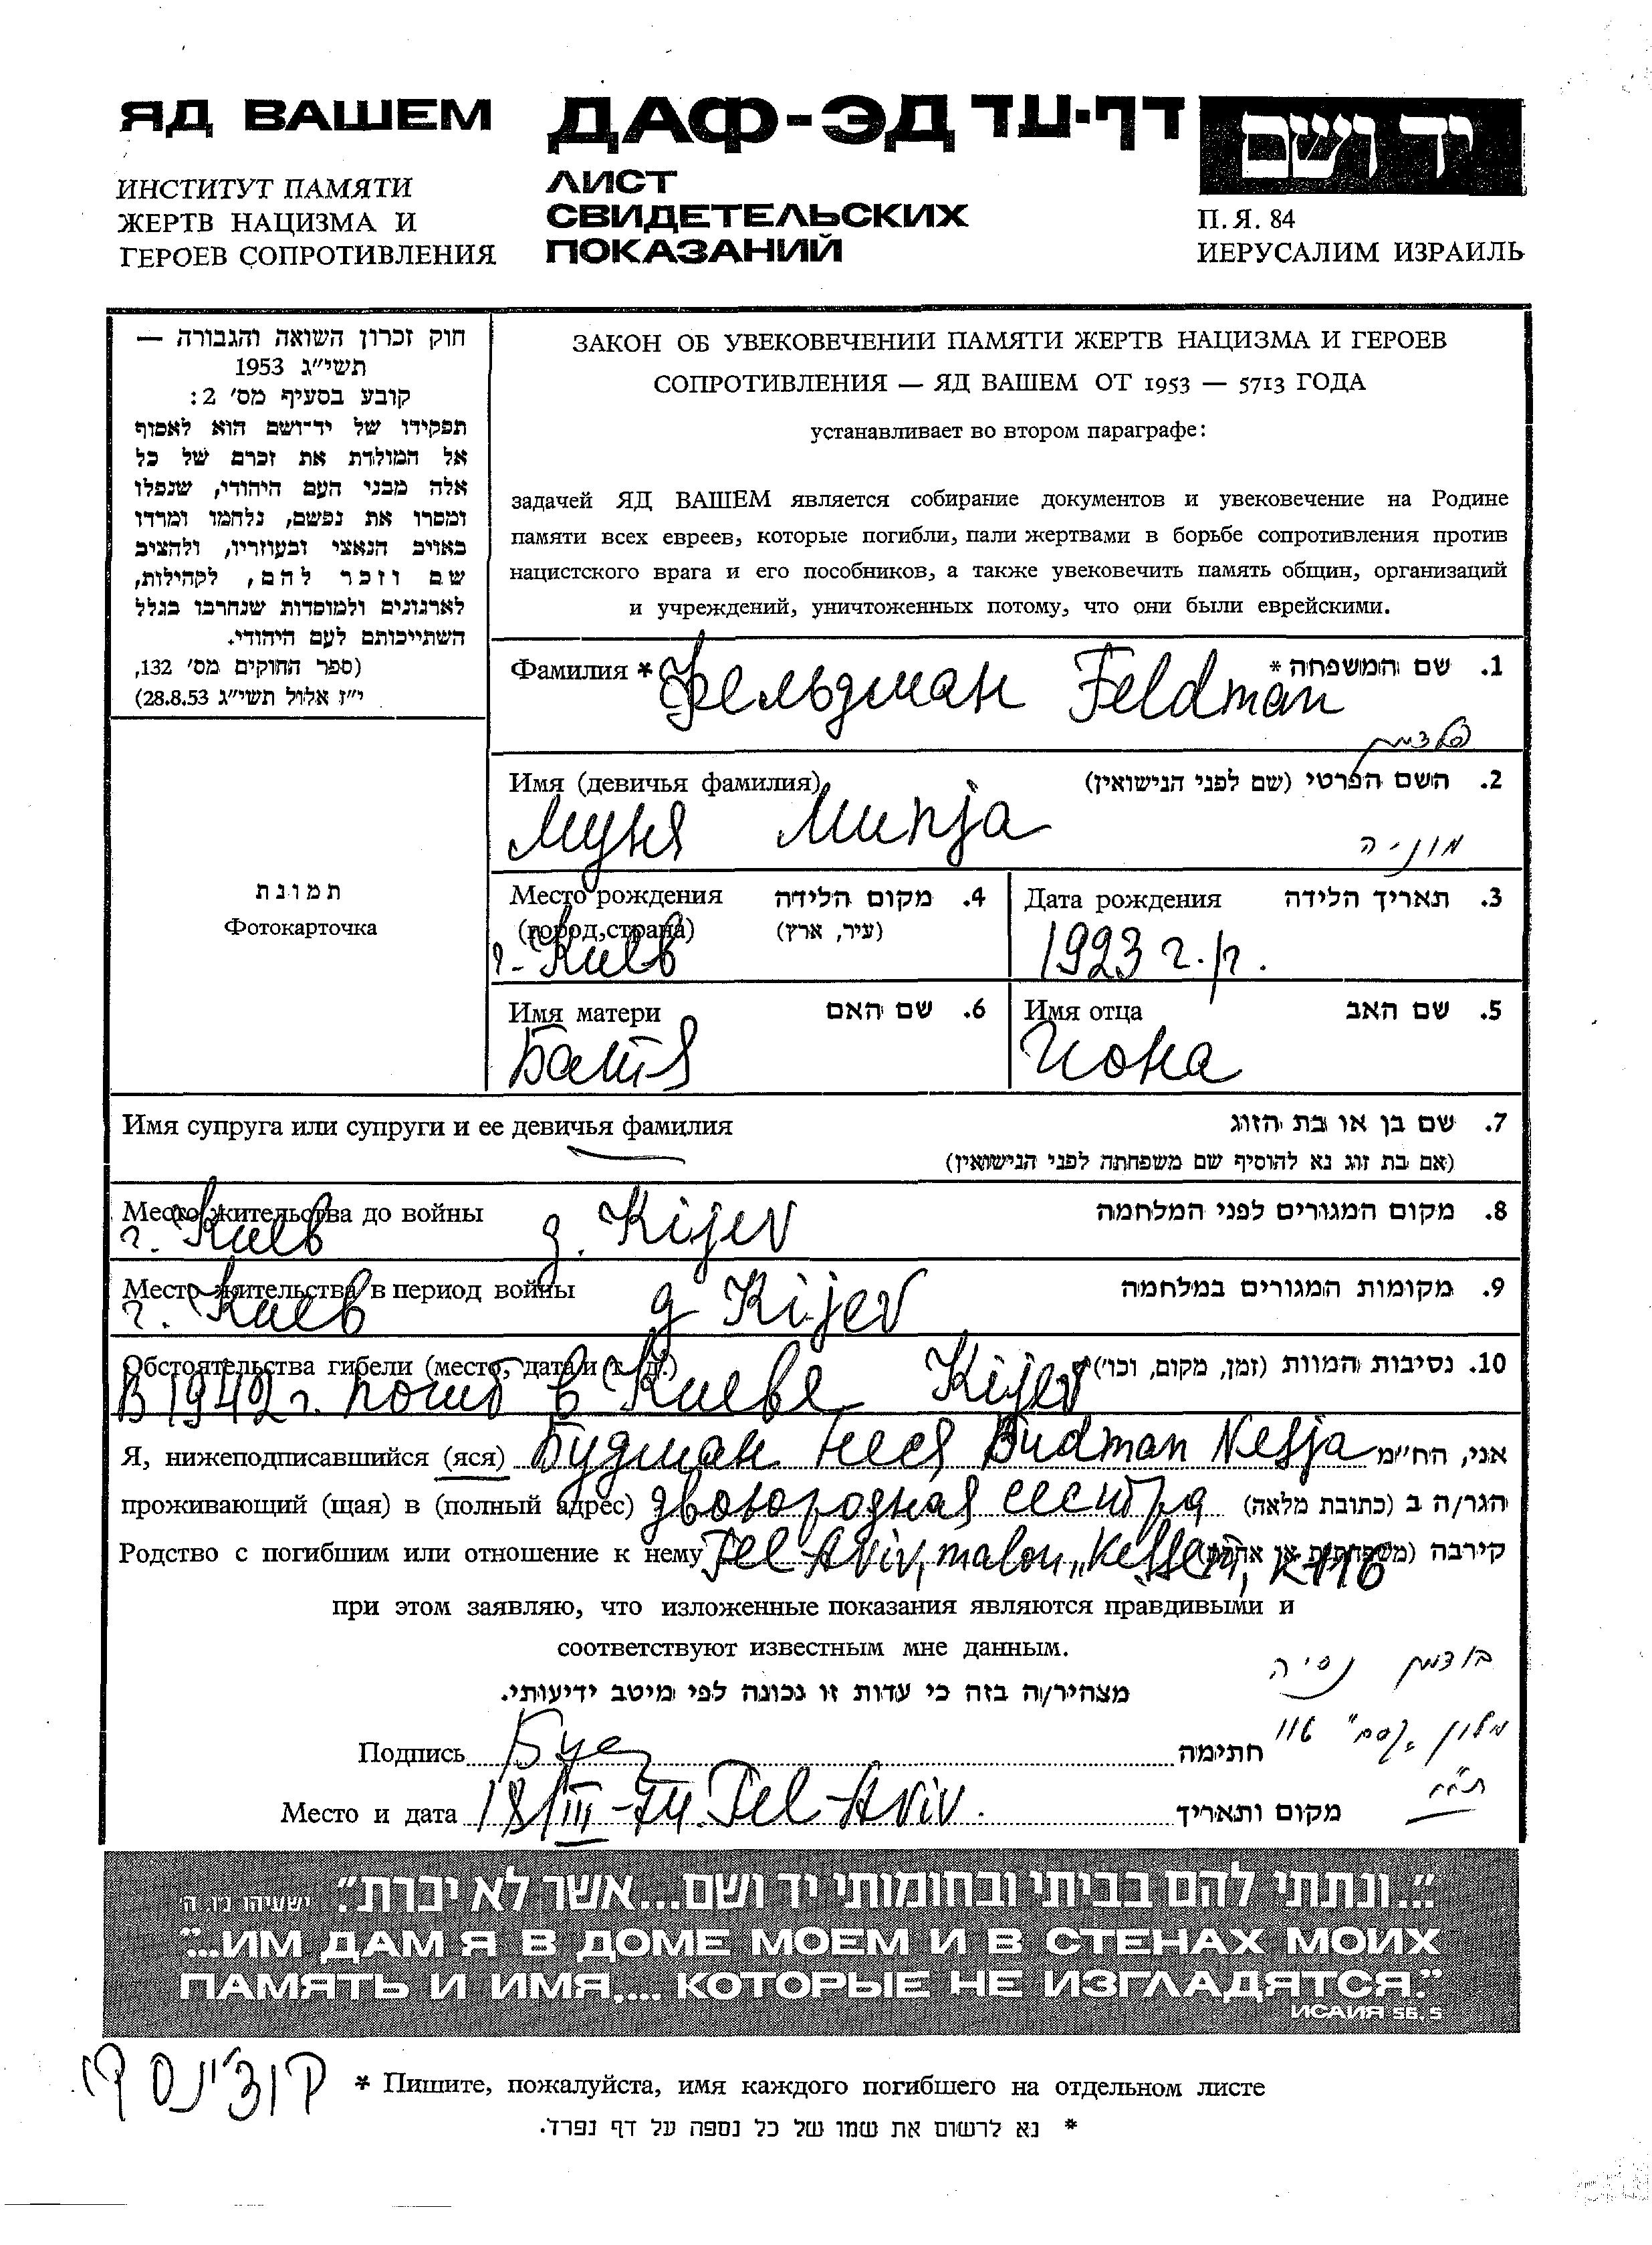 ЯД ВАШЕМ
ИНСТИТУТ ПАМЯТИ
ЖЕРТВ НАЦИЗМА И
ГЕРОЕВ СОПРОТИВЛЕНИЯ
ДАФ-ЭД דף-עד
ЛИСТ
СВИДЕТЕЛЬСКИХ
ПОКАЗАНИЙ
יד ושם
П. Я. 84
ИЕРУСАЛИМ ИЗРАИЛЬ
חוק זכרון השואה והגבורה —
תשי״ג 1953
קובע בסעיף מס׳ 2:
תפקידו של יד־ושם הוא לאסוף
אל המולדת את זכרם של כל
אלה מבני העם היהודי, שנפלו
ומסרו את נפשם, נלחמו ומרדו
באויב הנאצי ובעוזריו, ולהציב
שם וזכר להם, לקהילות,
לארגונים ולמוסדות שנחרבו בגלל
השתייכותם לעם היהודי.
(ספר החוקים מס׳ 132,
י״ז אלול תשי״ג 28.8.53)
ЗАКОН ОБ УВЕКОВЕЧЕНИИ ПАМЯТИ ЖЕРТВ НАЦИЗМА И ГЕРОЕВ
СОПРОТИВЛЕНИЯ — ЯД ВАШЕМ ОТ 1953 — 5713 ГОДА
устанавливает во втором параграфе:
задачей ЯД ВАШЕМ является собирание документов и увековечение на Родине
памяти всех евреев, которые погибли, пали жертвами в борьбе сопротивления против
нацистского врага и его пособников, а также увековечить память общин, организаций
и учреждений, уничтоженных потому, что они были еврейскими.
תמונת
Фотокарточка
Фамилия * Фельдман Feldman 1. שם המשפחה *
פלדמן
Имя (девичья фамилия) 2. השם הפרטי (שם לפני הנישואין)
Муня Munja מוניה
Место рождения 4. מקום הלידה
(город, страна) (עיר, ארץ)
г. Киев
Дата рождения 3. תאריך הלידה
1923 г.р.
Имя матери 6. שם האם
Батя
Имя отца 5. שם האב
Иона
Имя супруга или супруги и ее девичья фамилия 7. שם בן או בת הזוג
(אם בת זוג נא להוסיף שם משפחתה לפני הנישואין)
Место жительства до войны 8. מקום המגורים לפני המלחמה
г. Киев g. Kijev
Место жительства в период войны 9. מקומות המגורים במלחמה
г. Киев g Kijev
Обстоятельства гибели (место, дата и т. д.) 10. נסיבות המוות (זמן, מקום, וכו׳)
В 1942 г. погиб в Киеве Kijev
Я, нижеподписавшийся (яся) Будман Неся Budman Nesja אני, הח״מ
проживающий (щая) в (полный адрес) двоюродная сестра הגר/ה ב (כתובת מלאה)
Родство с погибшим или отношение к нему Tel-Aviv, malon „Kessem", k 116 קירבה (משפחתית או אחרת)
при этом заявляю, что изложенные показания являются правдивыми и
соответствуют известным мне данным.
בודמן נסיה
מצהיר/ה בזה כי עדות זו נכונה לפי מיטב ידיעותי.
מלון „קסם" 116
Подпись חתימה
ת״א
Место и дата 18/III-74. Tel-Aviv. מקום ותאריך
״...ונתתי להם בביתי ובחומותי יד ושם...אשר לא יכרת״. ישעיהו נו, ה׳
"...ИМ ДАМ Я В ДОМЕ МОЕМ И В СТЕНАХ МОИХ
ПАМЯТЬ И ИМЯ,... КОТОРЫЕ НЕ ИЗГЛАДЯТСЯ."
ИСАИЯ 56, 5
קוצ׳ינסקי
* Пишите, пожалуйста, имя каждого погибшего на отдельном листе
* נא לרשום את שמו של כל נספה על דף נפרד.